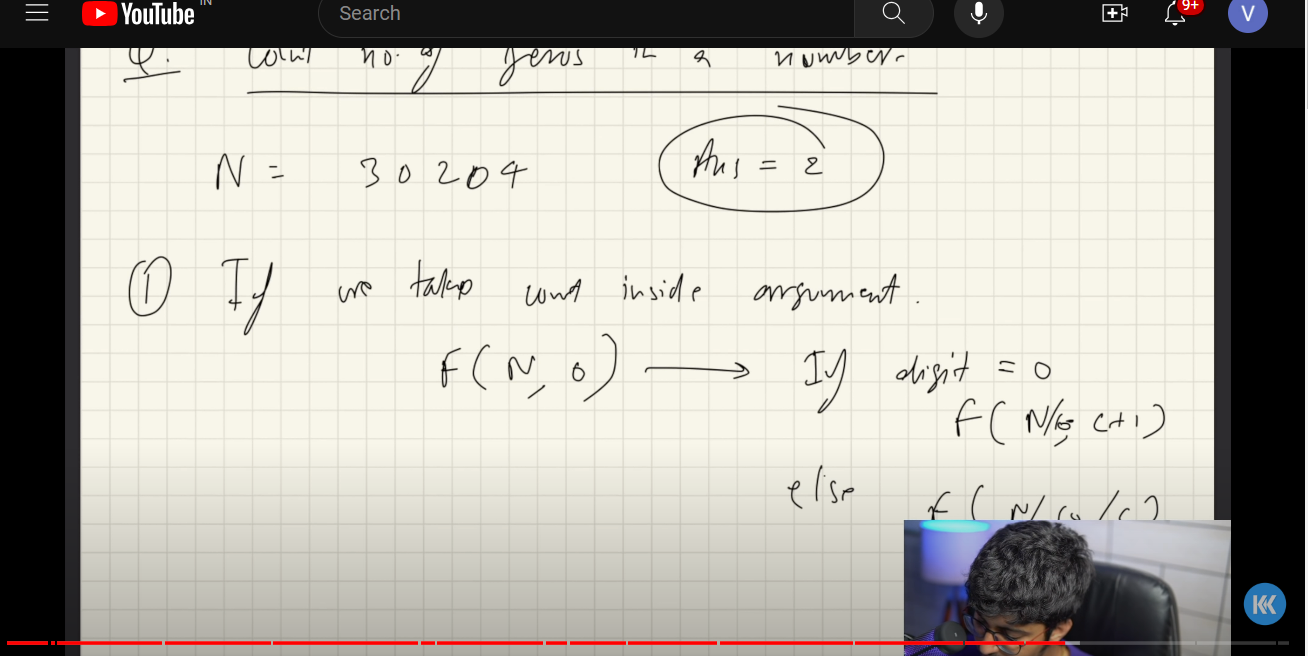 YouTube IN
Search
9+
V
Q. Count no. of zeros in a number.
N = 30204
Ans = 2
① If we take count inside argument.
F(N, 0) ⟶ If digit = 0
F(N/10, C+1)
else F(N/10, C)